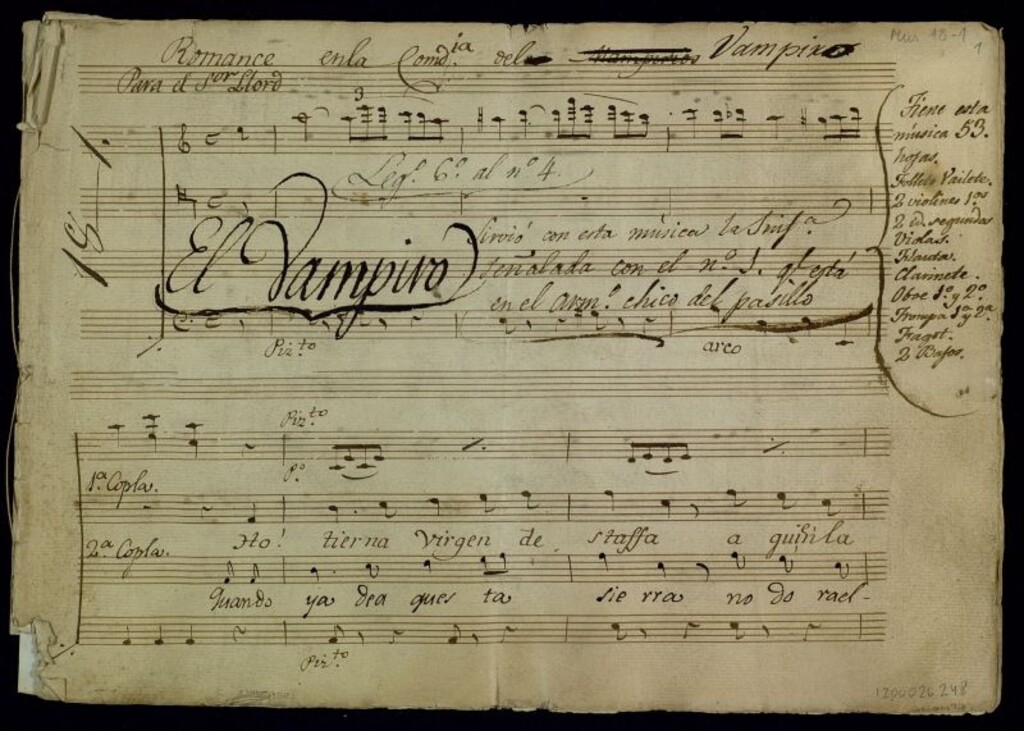 Mus 18-1
1
Romance enla Comd.ia del Vampiro
Para el S.or Llord
3
Leg.º 6.º al nº 4.
El Vampiro
Sirvió con esta música la Sinf.a
señalada con el nº 1. qe está
en el arm.º chico del pasillo
Piz.to
arco
Tiene esta
música 53.
hojas.
2 violines 1.os
2 id. segundos
Violas.
Flauta.
Clarinete.
Oboe 1.º y 2.º
Trompa 1.ª y 2.ª
Fagot.
2 Bajos.
Piz.to
P.º
1.ª Copla.
Ho! tierna Virgen de staffa a quin la
2.ª Copla.
Quando ya dea ques ta sie rra no do rael-
Piz.to
1200026248